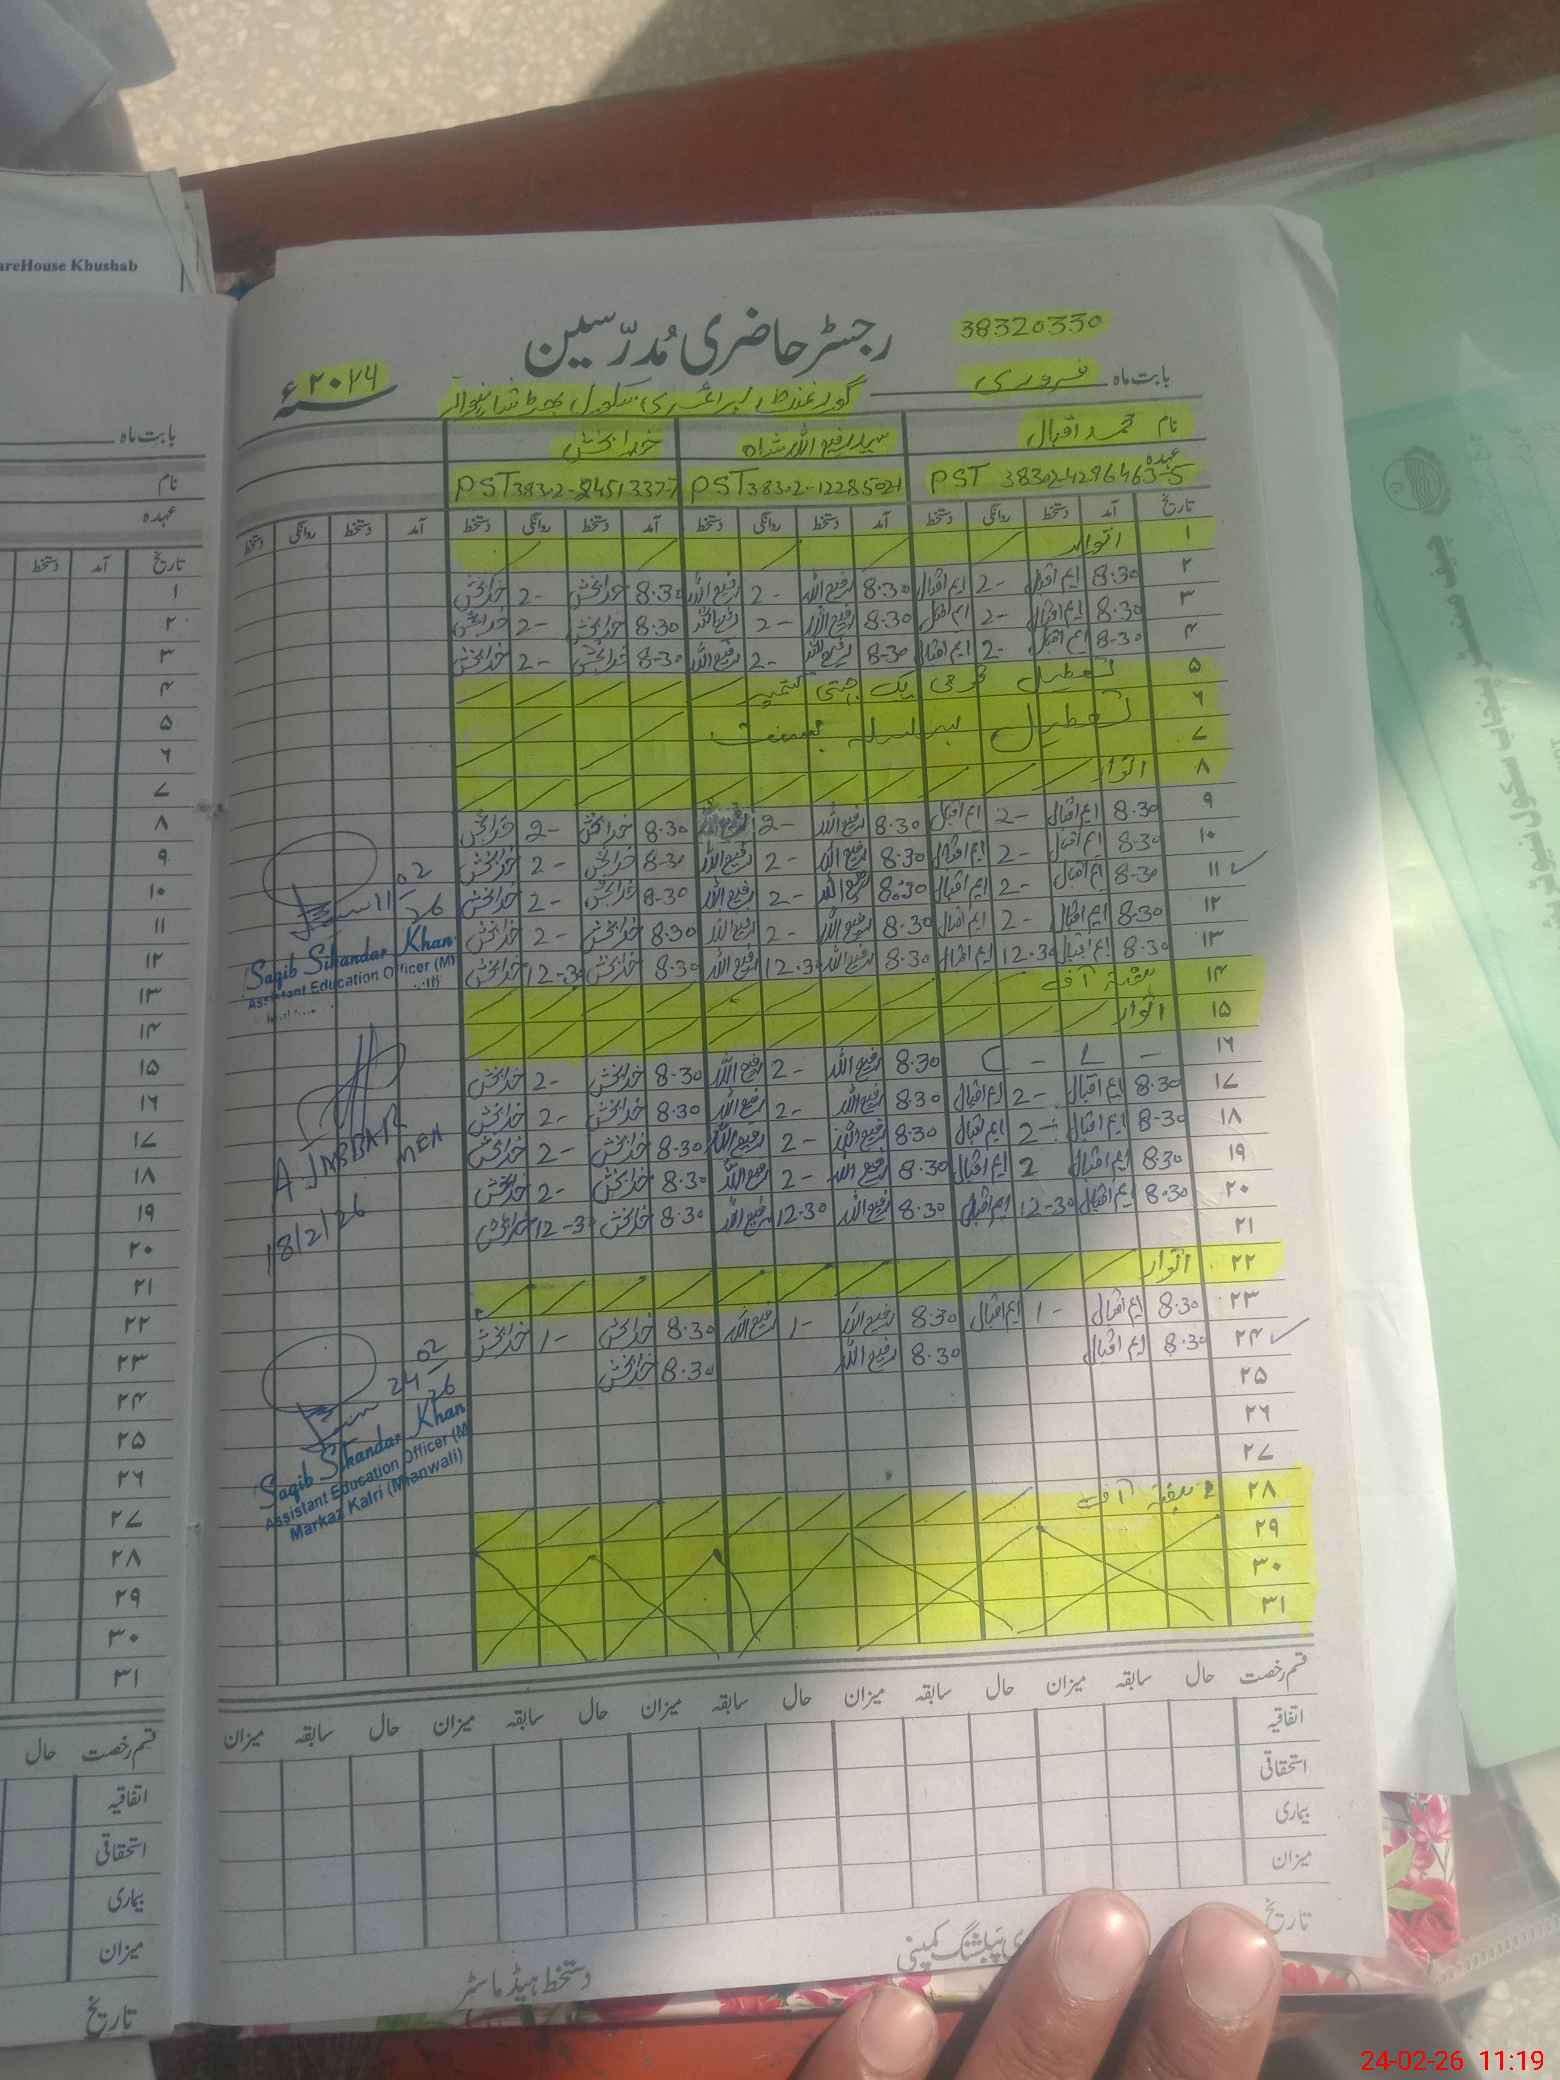 areHouse Khushab
رجسٹر حاضری مُدرّسین
38320330
بابت ماہ فروری
گورنمنٹ پرائمری سکول
۲۰۲۶ سنہء
نام محمد اقبال
سید رفیع اللہ شاہ
خدا بخش
عہدہ
PST 38302-4296463-5
PST 38302-1228502-1
PST
تاریخ آمد دستخط روانگی دستخط آمد دستخط روانگی دستخط آمد دستخط روانگی دستخط آمد دستخط روانگی دستخط
۱ اتوار
۲ 8.30 ایم اقبال 2- ایم اقبال 8.30 رفیع اللہ 2- رفیع اللہ 8.30 خدا بخش 2- خدا بخش
۳ 8.30 ایم اقبال 2- ایم اقبال 8.30 رفیع اللہ 2- رفیع اللہ 8.30 خدا بخش 2- خدا بخش
۴ 8-30 ایم اقبال 2- ایم اقبال 8-30 رفیع اللہ 2- رفیع اللہ 8-30 خدا بخش 2- خدا بخش
۵ تعطیل یک جہتی کشمیر
۶ تعطیل بسلسلہ بسنت
۷
۸ اتوار
۹ 8.30 ایم اقبال 2- ایم اقبال 8.30 رفیع اللہ 2- رفیع اللہ 8.30 خدا بخش 2- خدا بخش
۱۰ 8.30 ایم اقبال 2- ایم اقبال 8.30 رفیع اللہ 2- رفیع اللہ 8-30 خدا بخش 2- خدا بخش
۱۱ 8-30 ایم اقبال 2- ایم اقبال 8:30 رفیع اللہ 2- رفیع اللہ 8.30 خدا بخش 2- خدا بخش
۱۲ 8.30 ایم اقبال 2- ایم اقبال 8.30 رفیع اللہ 2- رفیع اللہ 8.30 خدا بخش 2- خدا بخش
۱۳ 8.30 ایم اقبال 12.30 ایم اقبال 8.30 رفیع اللہ 12.30 رفیع اللہ 8.30 خدا بخش 12-30 خدا بخش
۱۴ ہفتہ آف
۱۵ اتوار
۱۶ - L - C 8.30 رفیع اللہ 2- رفیع اللہ 8.30 خدا بخش 2- خدا بخش
۱۷ 8.30 ایم اقبال 2- ایم اقبال 8.30 رفیع اللہ 2- رفیع اللہ 8.30 خدا بخش 2- خدا بخش
۱۸ 8.30 ایم اقبال 2- ایم اقبال 8.30 رفیع اللہ 2- رفیع اللہ 8.30 خدا بخش 2- خدا بخش
۱۹ 8.30 ایم اقبال 2 ایم اقبال 8.30 رفیع اللہ 2- رفیع اللہ 8.30 خدا بخش 2- خدا بخش
۲۰ 8.30 ایم اقبال 12-30 ایم اقبال 8.30 رفیع اللہ 12.30 رفیع اللہ 8.30 خدا بخش 12-30 خدا بخش
۲۱
۲۲ اتوار
۲۳ 8.30 ایم اقبال 1- ایم اقبال 8.30 رفیع اللہ 1- رفیع اللہ 8.30 خدا بخش 1- خدا بخش
۲۴ 8.30 ایم اقبال 8.30 رفیع اللہ 8.30 خدا بخش
۲۵
۲۶
۲۷
۲۸ ہفتہ آف
۲۹
۳۰
۳۱
11/02/26
Saqib Sikandar Khan
Assistant Education Officer (M)
A. JABBAR
MEA
18/2/26
24/02/26
Saqib Sikandar Khan
Assistant Education Officer (M)
Markaz Kalri (Mianwali)
قسم رخصت حال سابقہ میزان حال سابقہ میزان حال سابقہ میزان حال سابقہ میزان
اتفاقیہ
استحقاقی
بیماری
میزان
تاریخ
دستخط ہیڈ ماسٹر
پبلشنگ کمپنی
بابت ماہ
نام
عہدہ
تاریخ آمد دستخط
۱
۲
۳
۴
۵
۶
۷
۸
۹
۱۰
۱۱
۱۲
۱۳
۱۴
۱۵
۱۶
۱۷
۱۸
۱۹
۲۰
۲۱
۲۲
۲۳
۲۴
۲۵
۲۶
۲۷
۲۸
۲۹
۳۰
۳۱
قسم رخصت حال
اتفاقیہ
استحقاقی
بیماری
میزان
تاریخ
چیف منسٹر پنجاب سکول نیوٹریشن
24-02-26 11:19